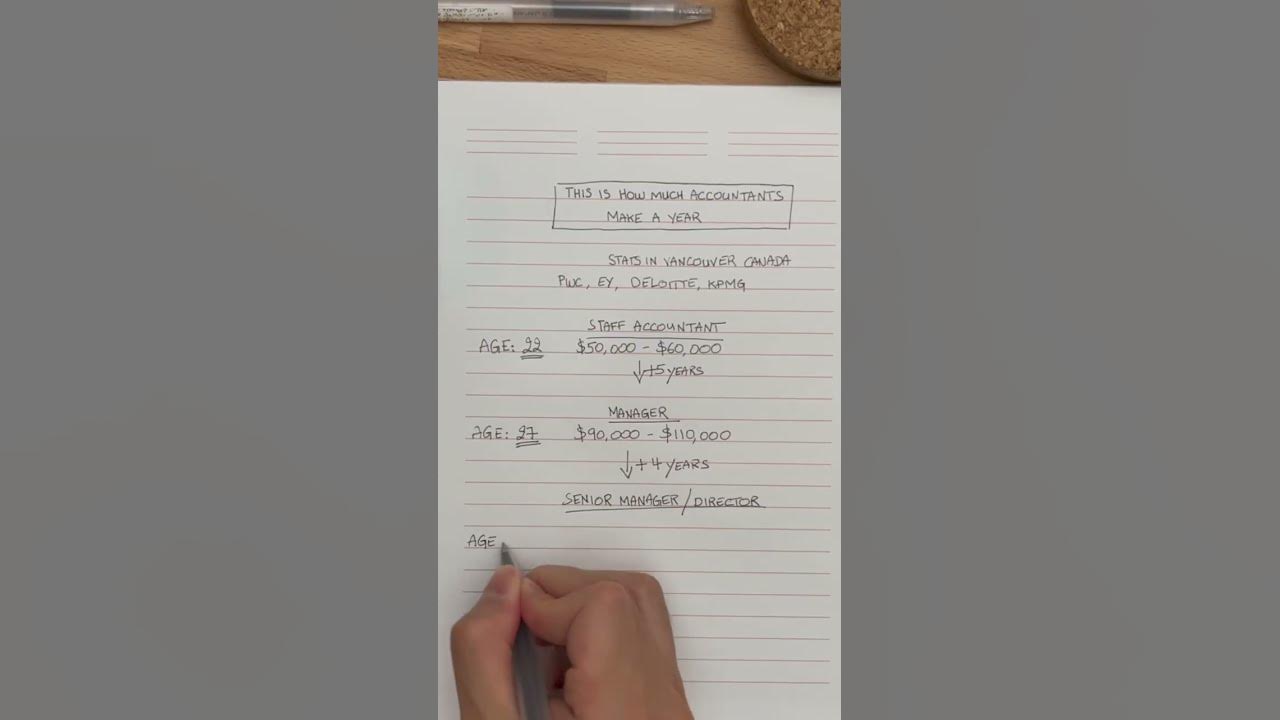 THIS IS HOW MUCH ACCOUNTANTS
MAKE A YEAR
STATS IN VANCOUVER CANADA
PWC, EY, DELOITTE, KPMG
STAFF ACCOUNTANT
AGE: 22 $50,000 - $60,000
↓+5 YEARS
MANAGER
AGE: 27 $90,000 - $110,000
↓+4 YEARS
SENIOR MANAGER/DIRECTOR
AGE